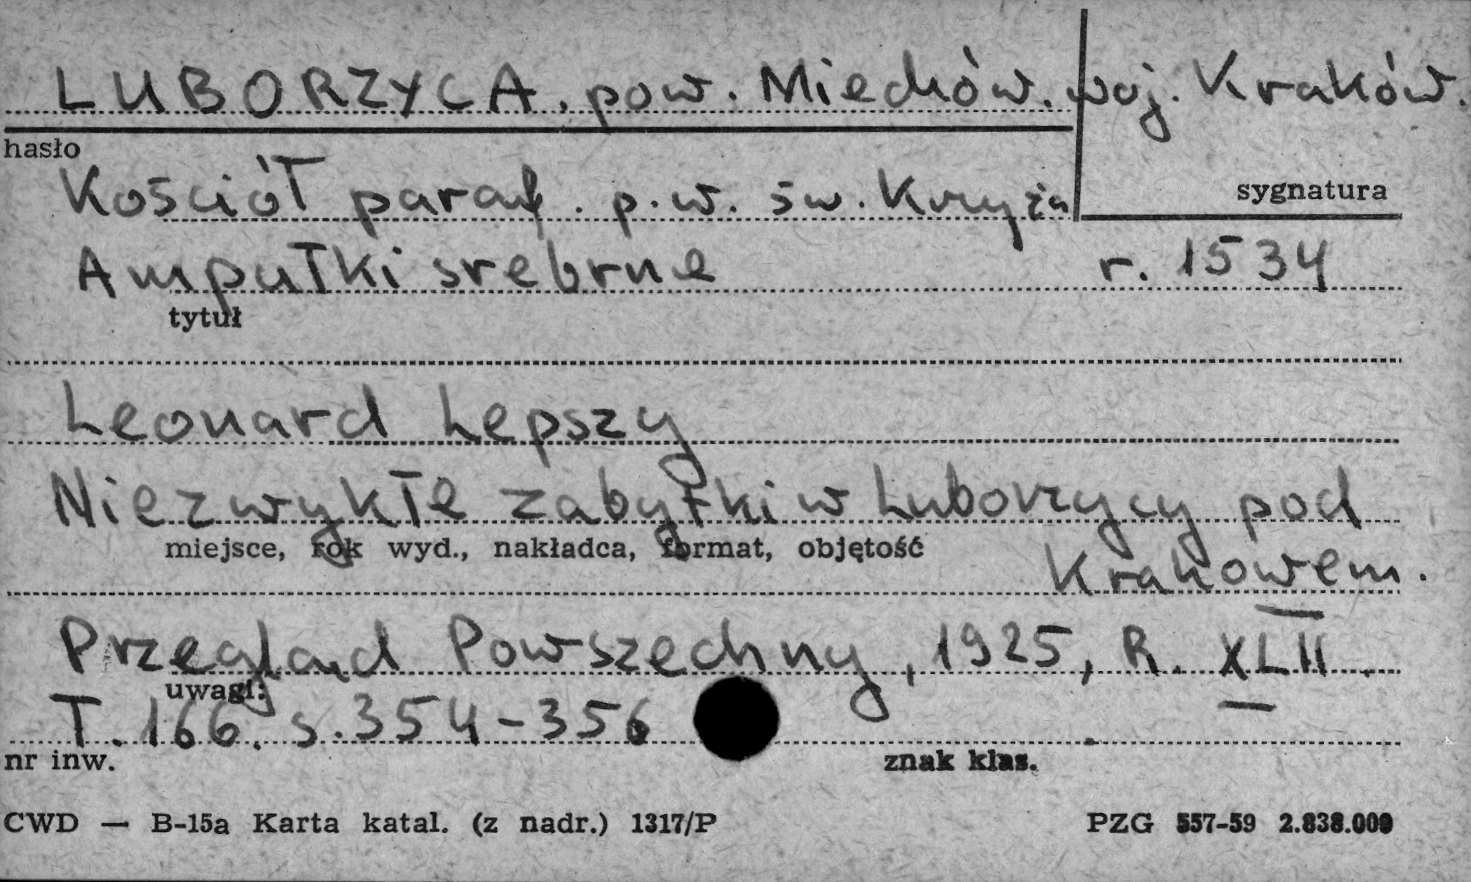 LUBORZYCA, pow. Miechów. woj. Kraków.
hasło
Kościół paraf. p.w. św. Krzyża
sygnatura
Ampułki srebrne r. 1534
tytuł
Leonard Lepszy
Niezwykłe zabytki w Luborzycy pod
miejsce, rok wyd., nakładca, format, objętość
Krakowem.
Przegląd Powszechny, 1925, R. XLII.
uwagi:
T. 166. s. 354-356
nr inw. znak klas.
CWD — B-15a Karta katal. (z nadr.) 1317/P PZG 557-59 2.838.000